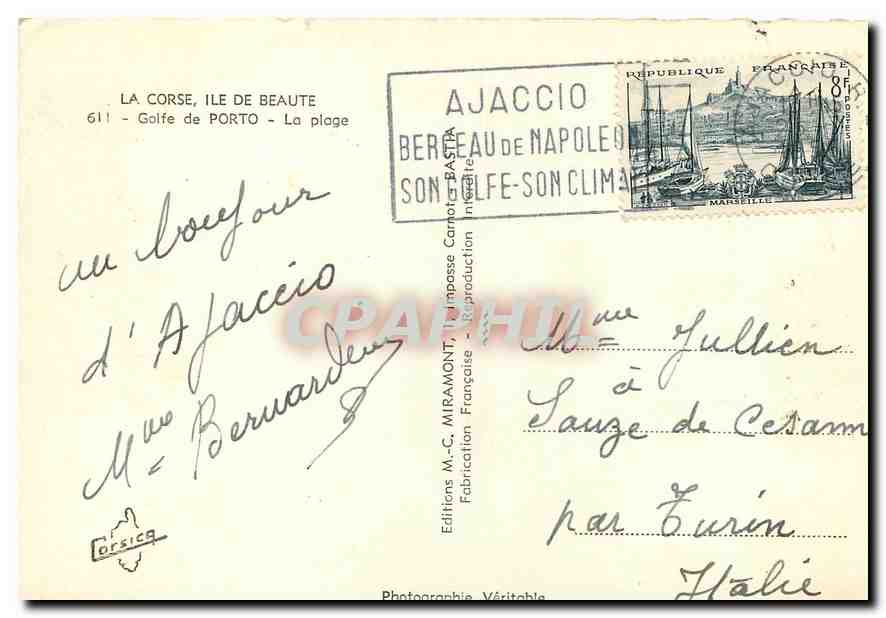 LA CORSE, ILE DE BEAUTE
611 - Golfe de PORTO - La plage
AJACCIO
BERCEAU DE NAPOLEON
SON GOLFE-SON CLIMA
REPUBLIQUE FRANÇAISE
8F
POSTES
MARSEILLE
un bonjour
d'Ajaccio
Mme Bernardini
Corsica
Editions M.-C. MIRAMONT, 1, Impasse Carnot - BASTIA
Fabrication Française - Reproduction Interdite
CPAPHIL
Mme Jullien
à
Sauze de Cesanne
par Turin
Italie
Photographie Véritable